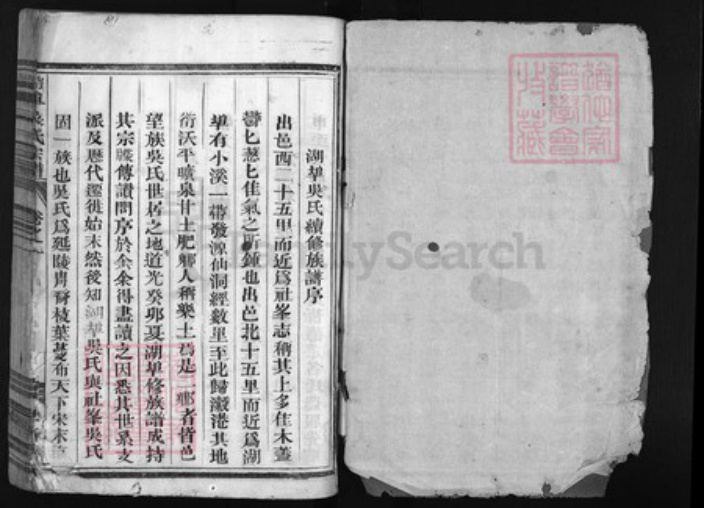 湖犂吳氏續修族譜序
出邑西二十五里而近爲社峯志稱其上多佳木薈
鬱匕葱匕佳氣之所鍾也出邑北十五里而近爲湖
犂有小溪一帶發源仙洞經數里至此歸瀫港其地
衍沃平曠泉甘土肥鄉人稱樂土焉是二鄉者皆邑
望族吳氏世居之地道光癸卯夏湖犂修族譜成持
其宗牒傳讃問序於余余得盡讀之因悉其世系支
派及歷代遷徙始末然後知湖犂吳氏與社峯吳氏
固一族也吳氏爲延陵胄裔枝葉蔓布天下宋末
FamilySearch